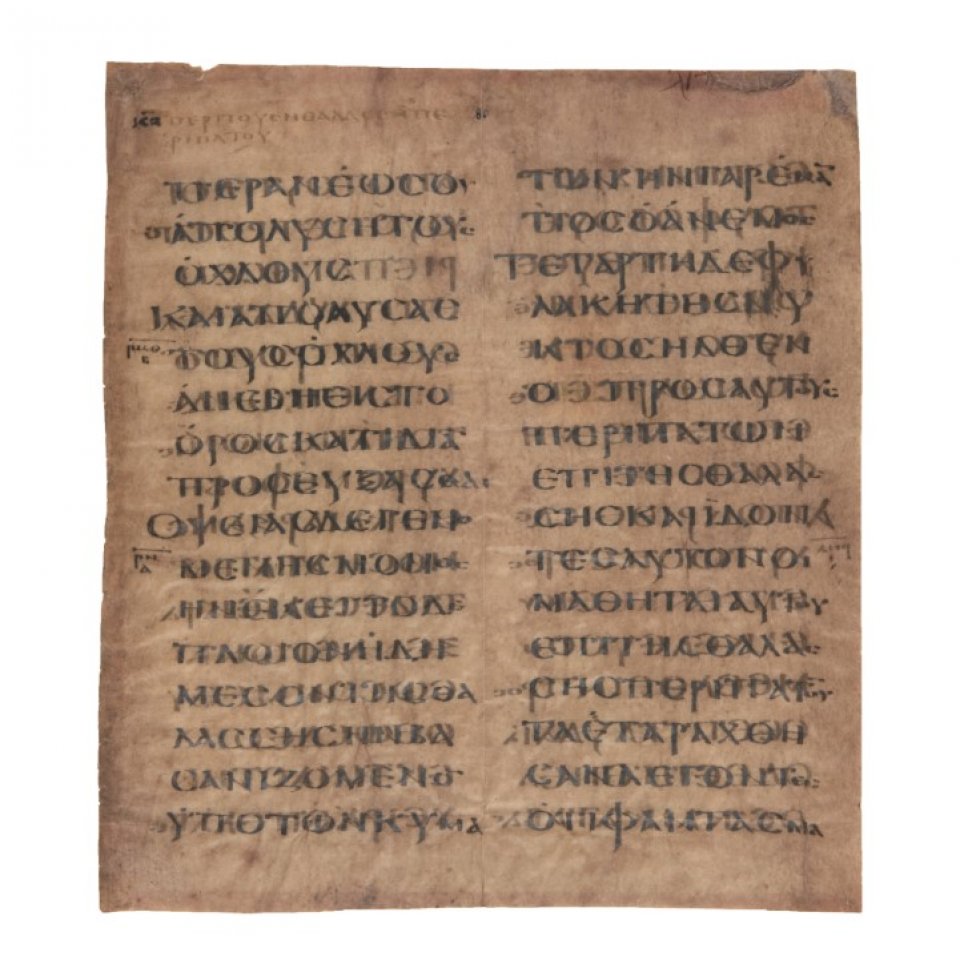 ΠΕΡΙΤΟΥΕΝΘΑΛΑϹϹΗΠΕ
ΡΙΠΑΤΟΥ
ΠΕΡΑΝΕΩϹΟΥ
ΑΠΟΛΥϹΗΤΟΥϹ
ΟΧΛΟΥϹ
ΚΑΙΑΠΟΛΥϹΑϹ
ΤΟΥϹΟΧΛΟΥϹ
ΑΝΕΒΗΕΙϹΤΟ
ΟΡΟϹΚΑΤΙΔΙΑ
ΠΡΟϹΕΥΞΑϹΘΑΙ
ΟΨΙΑϹΔΕΓΕΝΟ
ΜΕΝΗϹΜΟΝΟϹ
ΗΝΕΚΕΙΤΟΔΕ
ΠΛΟΙΟΝΗΔΗ
ΜΕϹΟΝΤΗϹΘΑ
ΛΑϹϹΗϹΗΝΒΑ
ϹΑΝΙΖΟΜΕΝΟ
ΥΠΟΤΩΝΚΥΜΑ
ΤΩΝΗΝΓΑΡΕΝΑ
ΤΙΟϹΟΑΝΕΜΟϹ
ΤΕΤΑΡΤΗΔΕΦΥ
ΛΑΚΗΤΗϹΝΥ
ΚΤΟϹΗΛΘΕΝ
ΟΙϹΠΡΟϹΑΥΤΟΥϹ
ΠΕΡΙΠΑΤΩΝ
ΕΠΙΤΗϹΘΑΛΑϹ
ϹΗϹΚΑΙΙΔΟΝ
ΤΕϹΑΥΤΟΝΟΙ
ΜΑΘΗΤΑΙΑΥΤΟΥ
ΕΠΙΤΗϹΘΑΛΑϹ
ϹΗϹΠΕΡΙΠΑΤΟΥ
ΤΑΕΤΑΡΑΧΘΗ
ϹΑΝΛΕΓΟΝΤΕϹ
ΟΤΙΦΑΝΤΑϹΜΑ